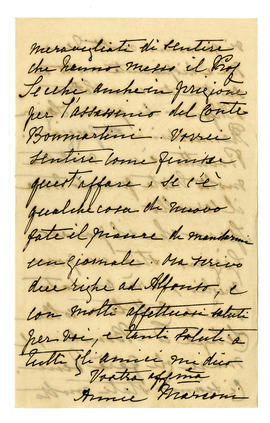 meravigliati di sentire
che hanno messo il Prof
Secchi anche in prigione
per l'assassinio del Conte
Bonmartini. Vorrei
sentire come finisce
quest'affare, se c'è
qualche cosa di nuovo
fate il piacere di mandarmi
un giornale. Ora scrivo
due righe ad Alfonso, e
con molti affettuosi saluti
per voi, e tanti saluti a
tutti gli amici mi dico
Vostra affma
Annie Marconi